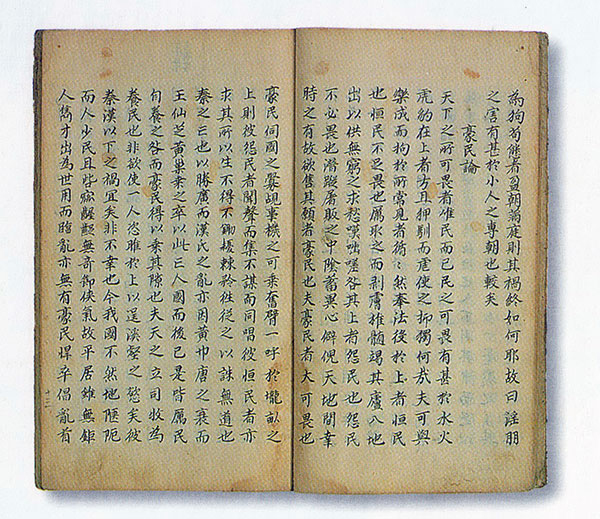 為狗苟態者盈朝蒲庭則其禍終如何耶故曰謠朋
之害有甚於小人之專朝也較矣
豪民論
天下之所可畏者唯民而已民之可畏有甚於水火
虎豹在上者方且狎馴而虐使之抑獨何哉夫可與
樂成而拘於所常見者循〻然奉法役於上者恒民
也恒民不足畏也厲取之而剥膚椎髓竭其廬入地
出以供無窮之求愁嘆咄嗟咎其上者怨民也怨民
不必畏也潛蹤屠販之中陰蓄異心僻倪天地間幸
時之有故欲售其願者豪民也夫豪民者大可畏也
豪民伺國之釁覘事機之可乘奮臂一呼於壠畝之
上則彼怨民者聞聲而集不謀而同唱彼恒民者亦
求其所以生不得不鋤耰棘矜徃從之以誅無道也
秦之亡也以勝廣而漢氏之亂亦因黄巾唐之衰而
王仙芝黄巢乘之卒以此亡人國而後已是皆厲民
自養之咎而豪民得以乘其隙也夫天之立司牧為
養民也非欲使一人恣睢於上以逞溪壑之慾矣彼
秦漢以下之禍宜矣非不幸也今我國不然地陿阨
而人少民且呰窳齷齪無奇節俠氣故平居雖無鉅
人雋才出為世用而臨亂亦無有豪民悍卒倡亂首
十三